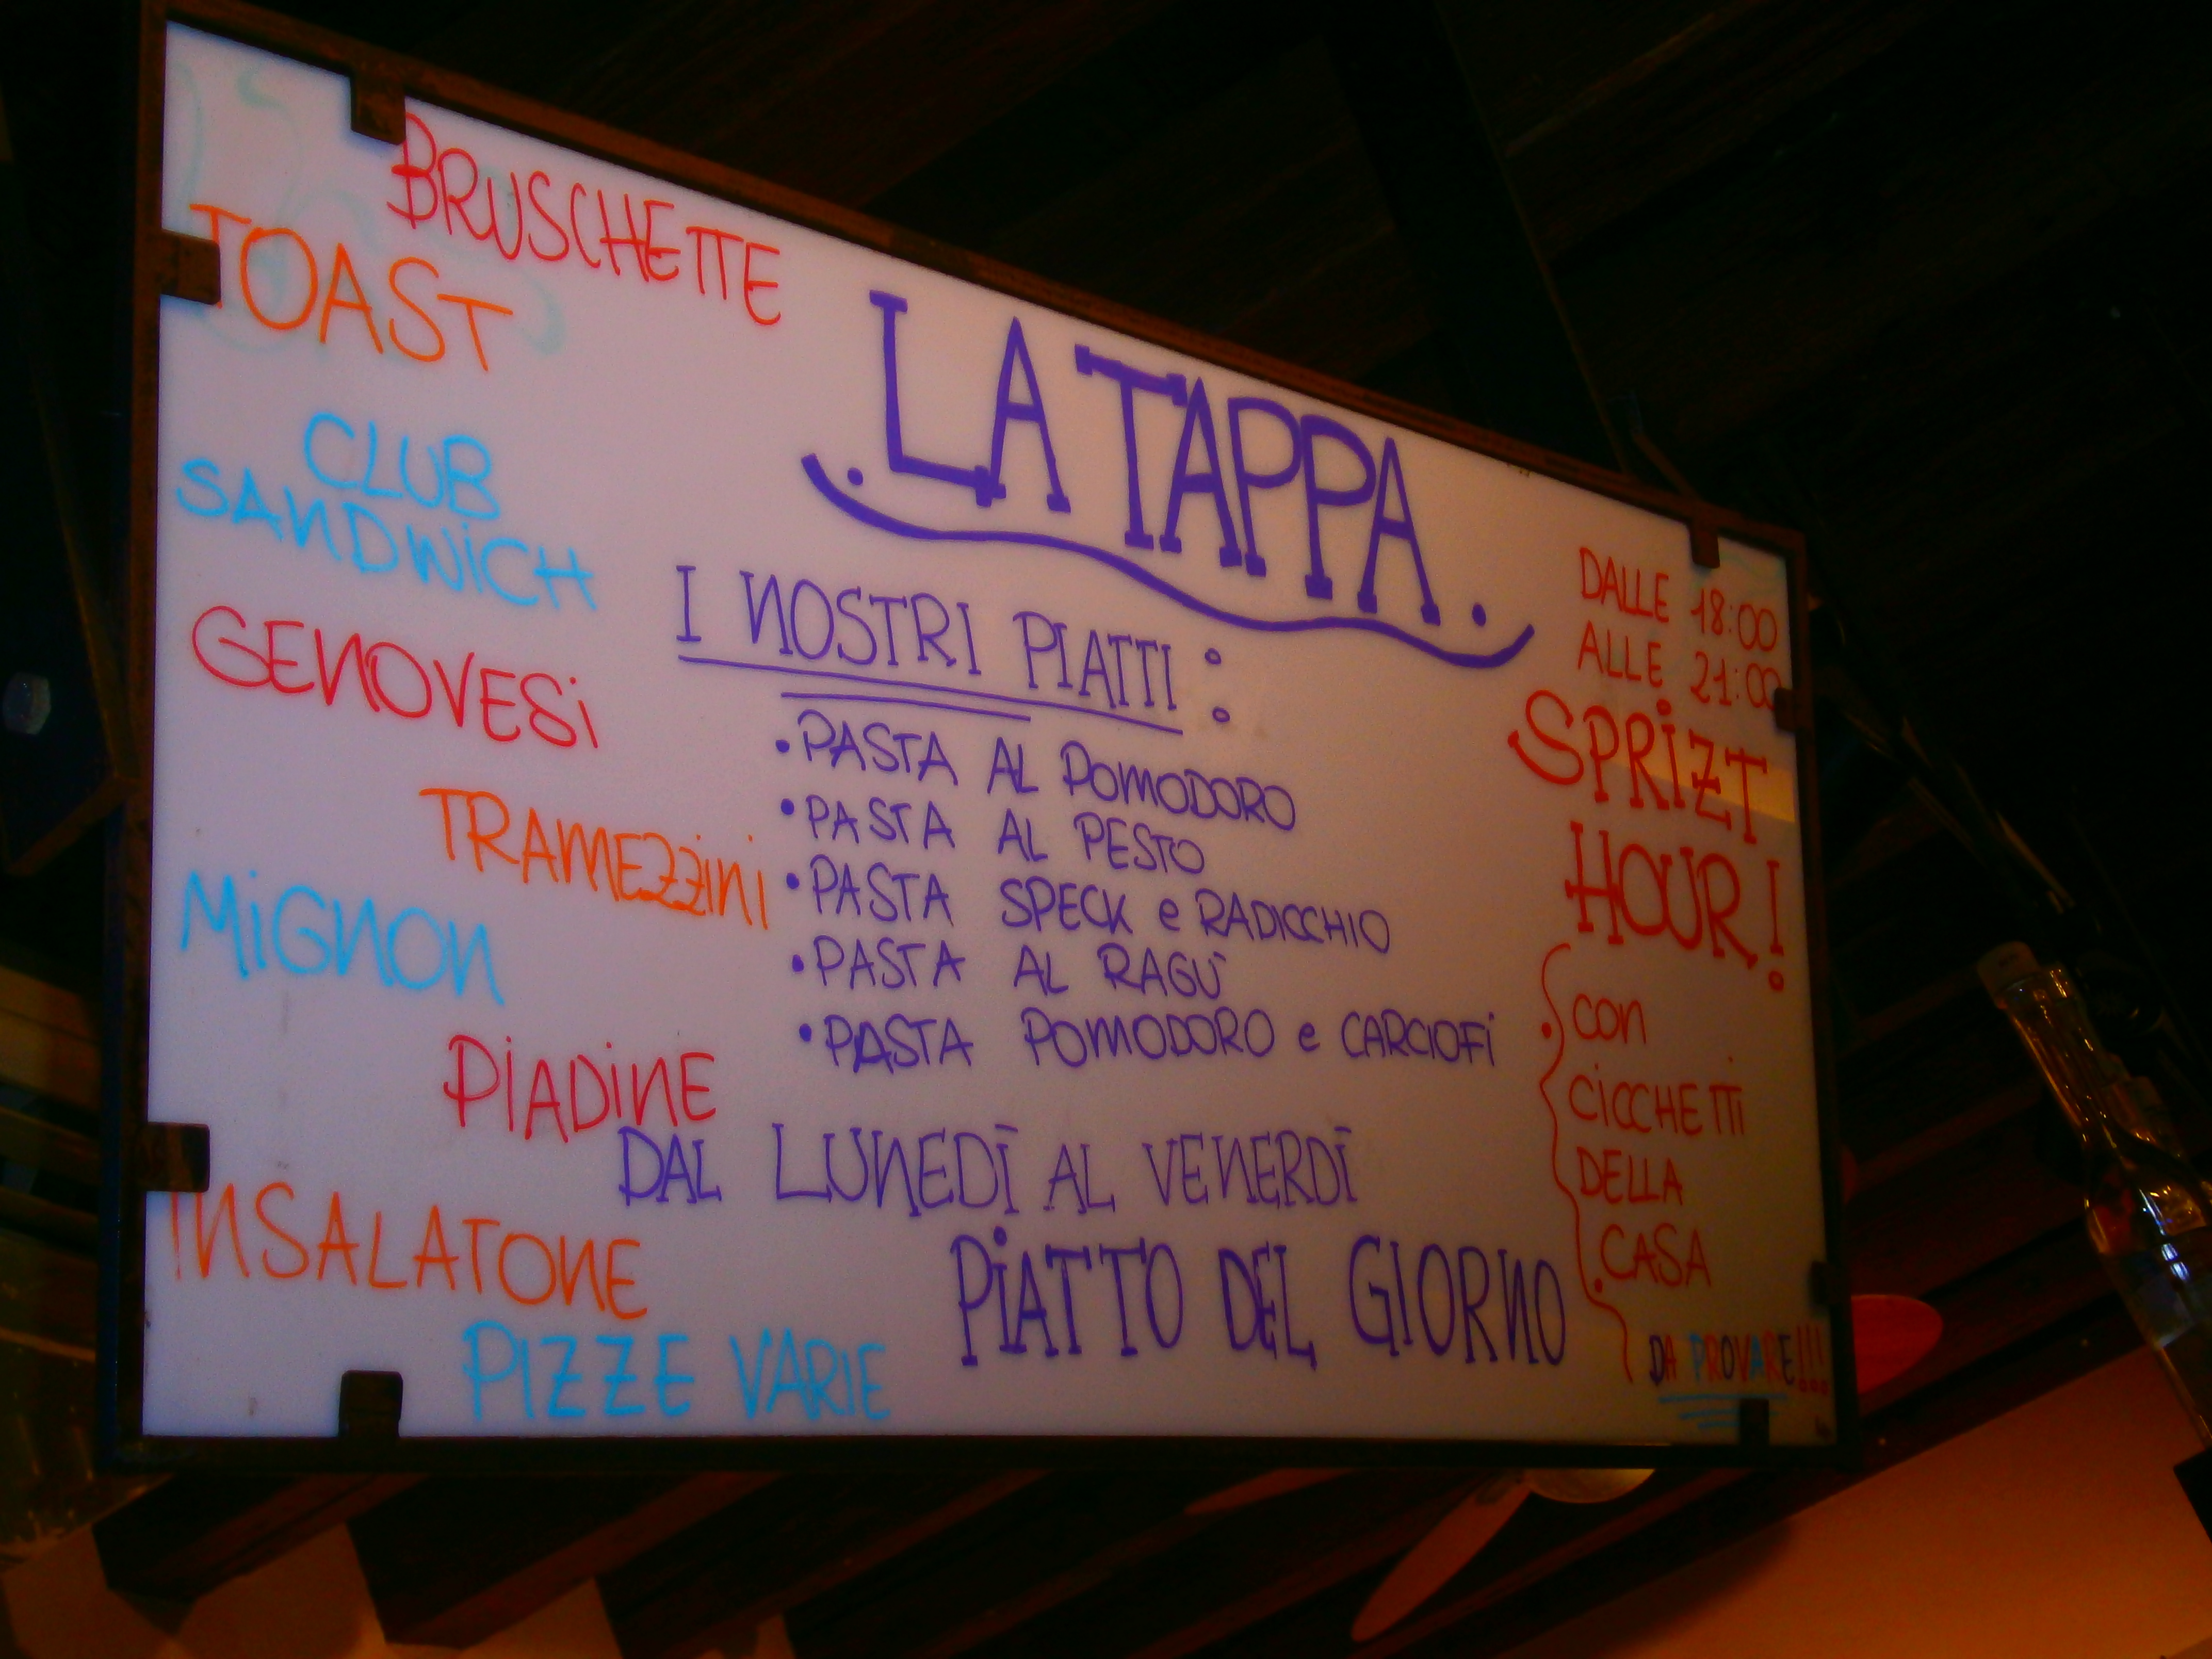 BRUSCHETTE
TOAST
CLUB
SANDWiCH
GENOVESi
TRAMEZZiNi
MiGNON
PiADiNE
INSALATONE
PIZZE VARIE
.LA TAPPA.
I NOSTRI PIATTI :
• PASTA AL POMODORO
• PASTA AL PESTO
• PASTA SPECK e RADICCHIO
• PASTA AL RAGÙ
• PASTA POMODORO e CARCIOFi
DAL LUNEDÌ AL VENERDÌ
PiATTO DEL GIORNO
DALLE 18:00
ALLE 21:00
SPRiZT
HOUR!
CON
CiCCHETTi
DELLA
CASA
DA PROVARE!!!